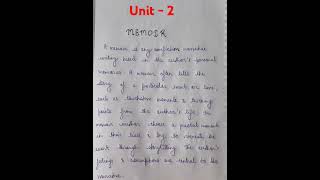 Unit - 2
MEMOIR
A memoir is any nonfiction narrative
writing based in the author's personal
memories. A memoir often tells the
story of a particular event or time,
such as touchstone moments & turning
points from the author's life. The
memoir author choose a pivotal moment
in their life & try to recreate the
event through storytelling. The author's
feelings & assumptions are central to the
narrative.